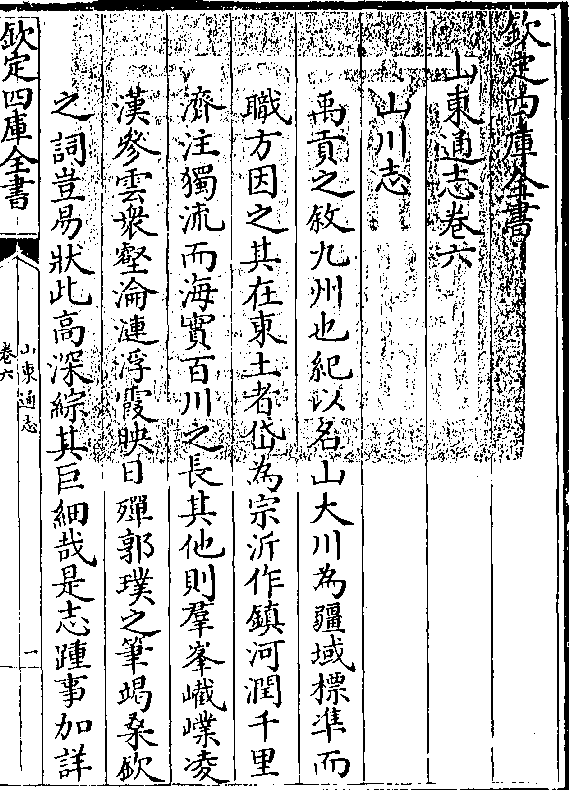 欽定四庫全書
山東通志卷六
山川志
禹貢之敘九州也紀以名山大川為疆域標準而
職方因之其在東土者岱為宗沂作鎮河潤千里
濟注獨流而海實百川之長其他則羣峯巀嶫凌
漢參雲衆壑淪漣浮霞映日殫郭璞之筆竭桑欽
之詞豈易狀此高深綜其巨細哉是志踵事加詳
欽定四庫全書
山東通志
卷六
一